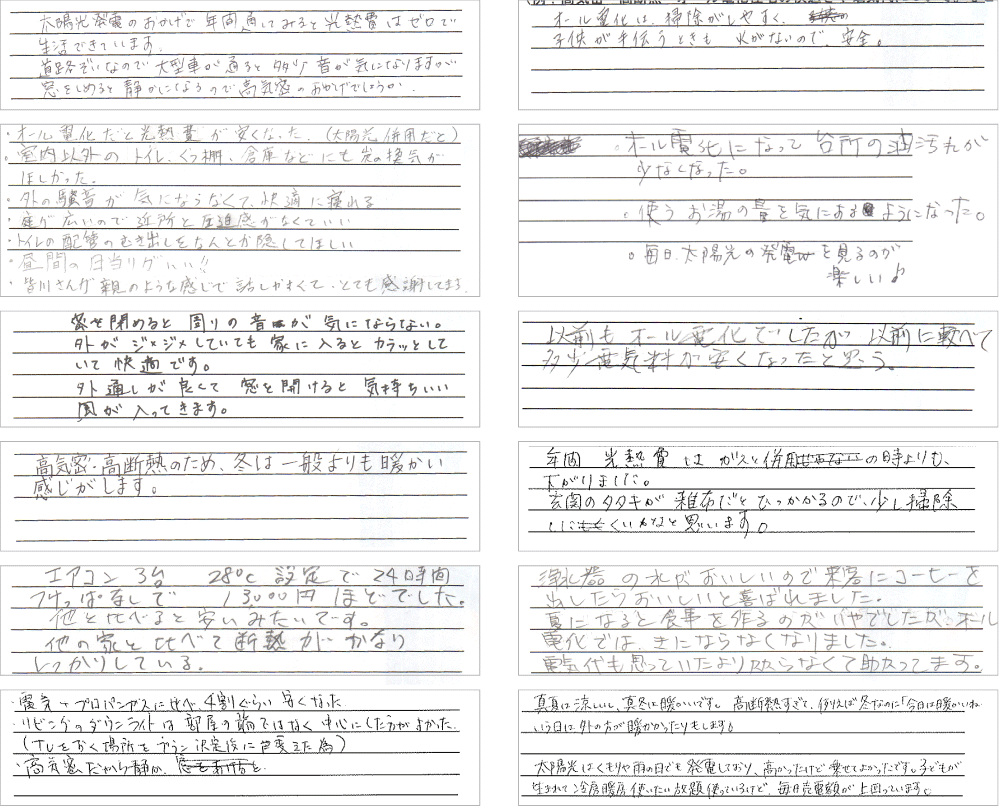 太陽光発電のおかげで年間通してみると光熱費はゼロで
生活できています。
道路ぞいなので大型車が通ると多少音が気になりますが
窓をしめると静かになるので高気密のおかげでしょうか。
オール電化は、掃除がしやすく、
子供が手伝うときも 火がないので、安全。
・オール電化だと光熱費が安くなった。(太陽光併用だと)
・室内以外のトイレ、くつ棚、倉庫などにも光の換気が
ほしかった。
・外の騒音が気にならなくて、快適に寝れる
・庭が広いので近所と圧迫感がなくていい
・トイレの配管のむき出しをなんとか隠してほしい
・昼間の日当りがいい!!
・皆川さんが親のような感じで話しかれて、とても感謝してます。
。オール電化になって台所の油汚れが
少なくなった。
。使うお湯の量を気にするようになった。
。毎日、太陽光の発電wを見るのが
楽しい♪
窓を閉めると周りの音が気にならない。
外がジメジメしていても家に入るとカラッとして
いて快適です。
外通しが良くて 窓を開けると気持ちいい
風が入ってきます。
以前もオール電化でしたが 以前に較べて
多少電気料が安くなったと思う。
高気密・高断熱のため、冬は一般よりも暖かい
感じがします。
年間 光熱費は ガスと併用の時よりも、
下がりました。
玄関のタタキが雑布だとひっかかるので、少し掃除
しにくいかなと思います。
エアコン3台 28℃設定で24時間
つけっぱなしで 13000円ほどでした。
他と比べると安いみたいです。
他の家と比べて断熱がかなり
しっかりしている。
浄水器の水がおいしいので来客にコーヒーを
出したらおいしいと喜ばれました。
夏になると食事を作るのがいやでしたが、オール
電化では、きにならなくなりました。
電気代も思っていたよりかからなくて助かってます。
・電気+プロパンガスに比べ、4割ぐらい安くなった
・リビングのダウンライトは部屋の端ではなく中心にした方がよかった。
(TVをおく場所をプラン決定後に変えた為)
・高気密だから静か。
真夏は涼しいし、真冬は暖かいです。高断熱すぎて、例えば冬なのに「今日は暖かいね」
いう日に外の方が暖かかったりもします。
太陽光はくもりや雨の日でも発電しており、高かったけど乗せてよかったです。子どもが
生まれて冷房暖房使いたい放題使っているけど、毎月売電額が上回っています。